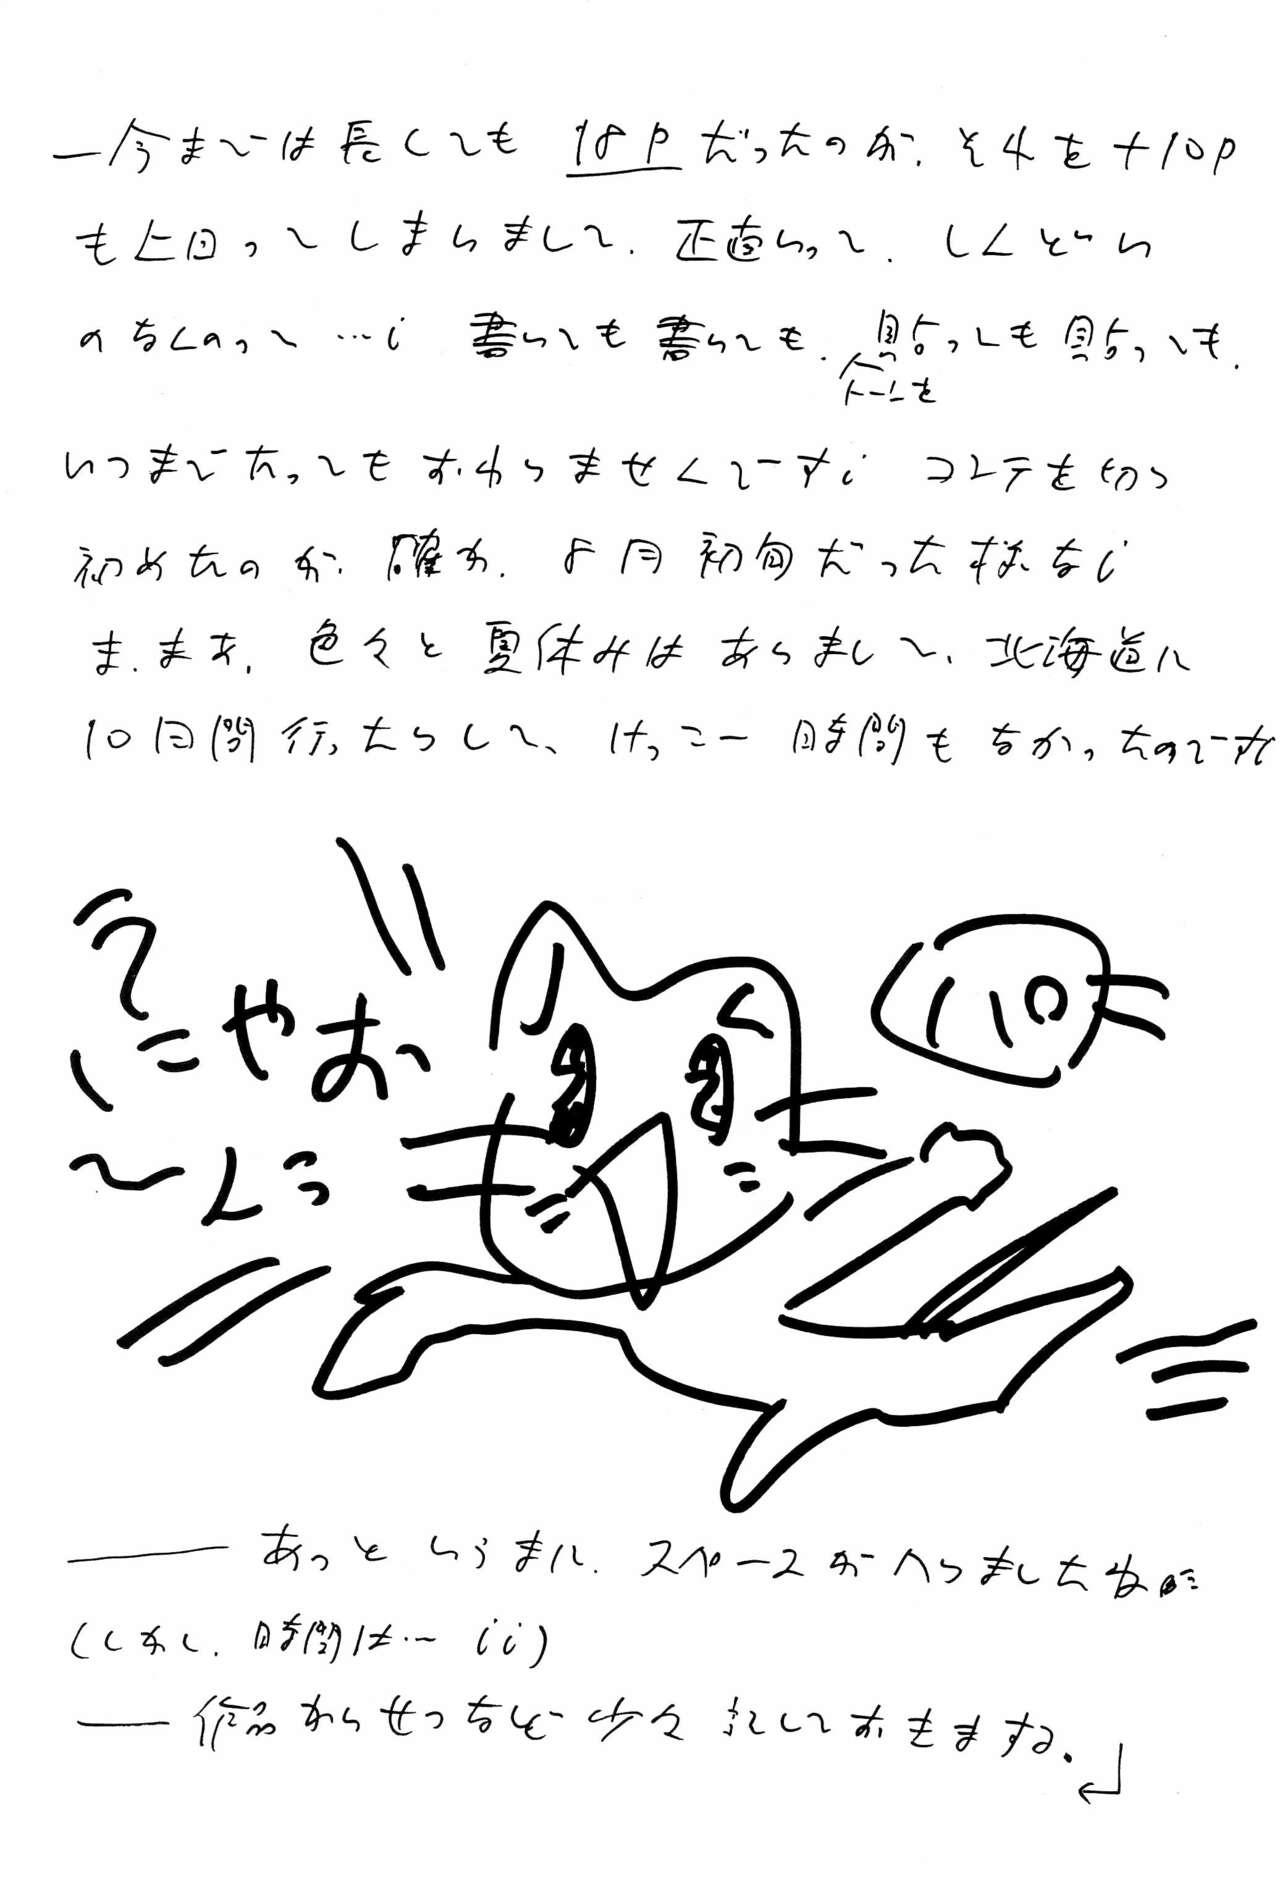 一今までは長くても 18Pだったのが、それを+10P
も上回ってしまいまして、正直いって、しんどい
のなんのって…; 書いても書いても、貼っても貼っても、
トーンを
いつまでたってもおわりませんでーす; コンテを切り
初めたのが、確か、8月初旬だった様な;
ま、まあ、色々と夏休みはありまして、北海道に
10日間行ったりして、けっこー時間もなかったのです
にゃお
〜んっ
――あっというまに、スペースがへりましたね
(しかし、時間は… ;;)
――作品かいせつなど少々記しておきまする。